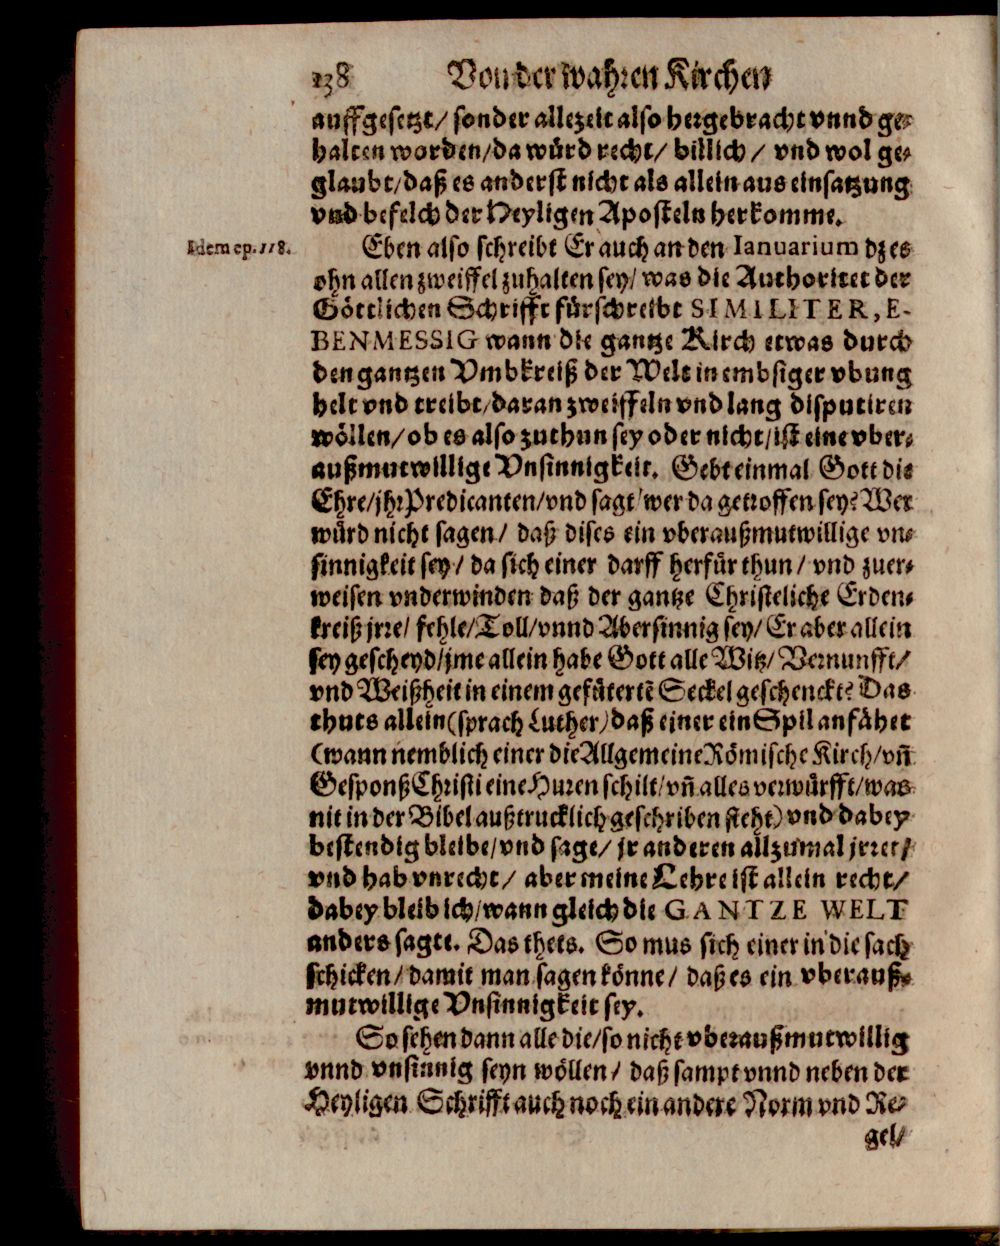 138 Von der wahren Kirchen
auffgesetzt/ sonder allezeit also hergebracht vnnd ge-
halten worden/ da würd recht/ billich/ vnd wol ge-
glaubt/ daß es anderst nicht als allein aus einsatzung
vnd befelch der Heyligen Aposteln herkomme.
Idem ep. 118.
Eben also schreibt Er auch an den Ianuarium dz es
ohn allen zweiffel zuhalten sey/ was die Authoritet der
Göttlichen Schrifft fürschreibt SIMILITER, E-
BENMESSIG wann die gantze Kirch etwas durch
den gantzen Vmbkreiß der Welt in embsiger vbung
helt vnd treibt/ daran zweiffeln vnd lang disputiren
wöllen/ ob es also zuthun sey oder nicht/ ist eine vber-
außmutwillige Vnsinnigkeit. Gebt einmal Gott die
Ehre/ jhr Predicanten/ vnd sagt/ wer da getroffen sey? Wer
würd nicht sagen/ daß dises ein vberaußmutwillige vn-
sinnigkeit sey/ da sich einer darff herfür thun/ vnd zuer-
weisen vnderwinden daß der gantze Christeliche Erden-
kreiß jrre/ fehle/ Toll/ vnnd Abersinnig sey/ Er aber allein
sey gescheyd/ jme allein habe Gott alle Witz/ Vernunfft/
vnd Weißheit in einem gefütertẽ Seckel geschenckt? Das
thuts allein (sprach Luther) daß einer ein Spil anfähet
(wann nemblich einer die Allgemeine Römische Kirch/ vñ
Gesponß Christi eine Huren schilt/ vñ alles verwürfft/ was
nit in der Bibel außtrucklich geschriben steht) vnd dabey
bestendig bleibe/ vnd sage/ jr anderen allzumal jrret/
vnd hab vnrecht/ aber meine Lehre ist allein recht/
dabey bleib ich/ wann gleich die GANTZE WELT
anders sagte. Das thets. So mus sich einer in die sach
schicken/ damit man sagen könne/ daß es ein vberauß-
mutwillige Vnsinnigkeit sey.
So sehen dann alle die/ so nicht vberaußmutwillig
vnnd vnsinnig seyn wöllen/ daß sampt vnnd neben der
Heyligen Schrifft auch noch ein andere Norm vnd Re-
gel/